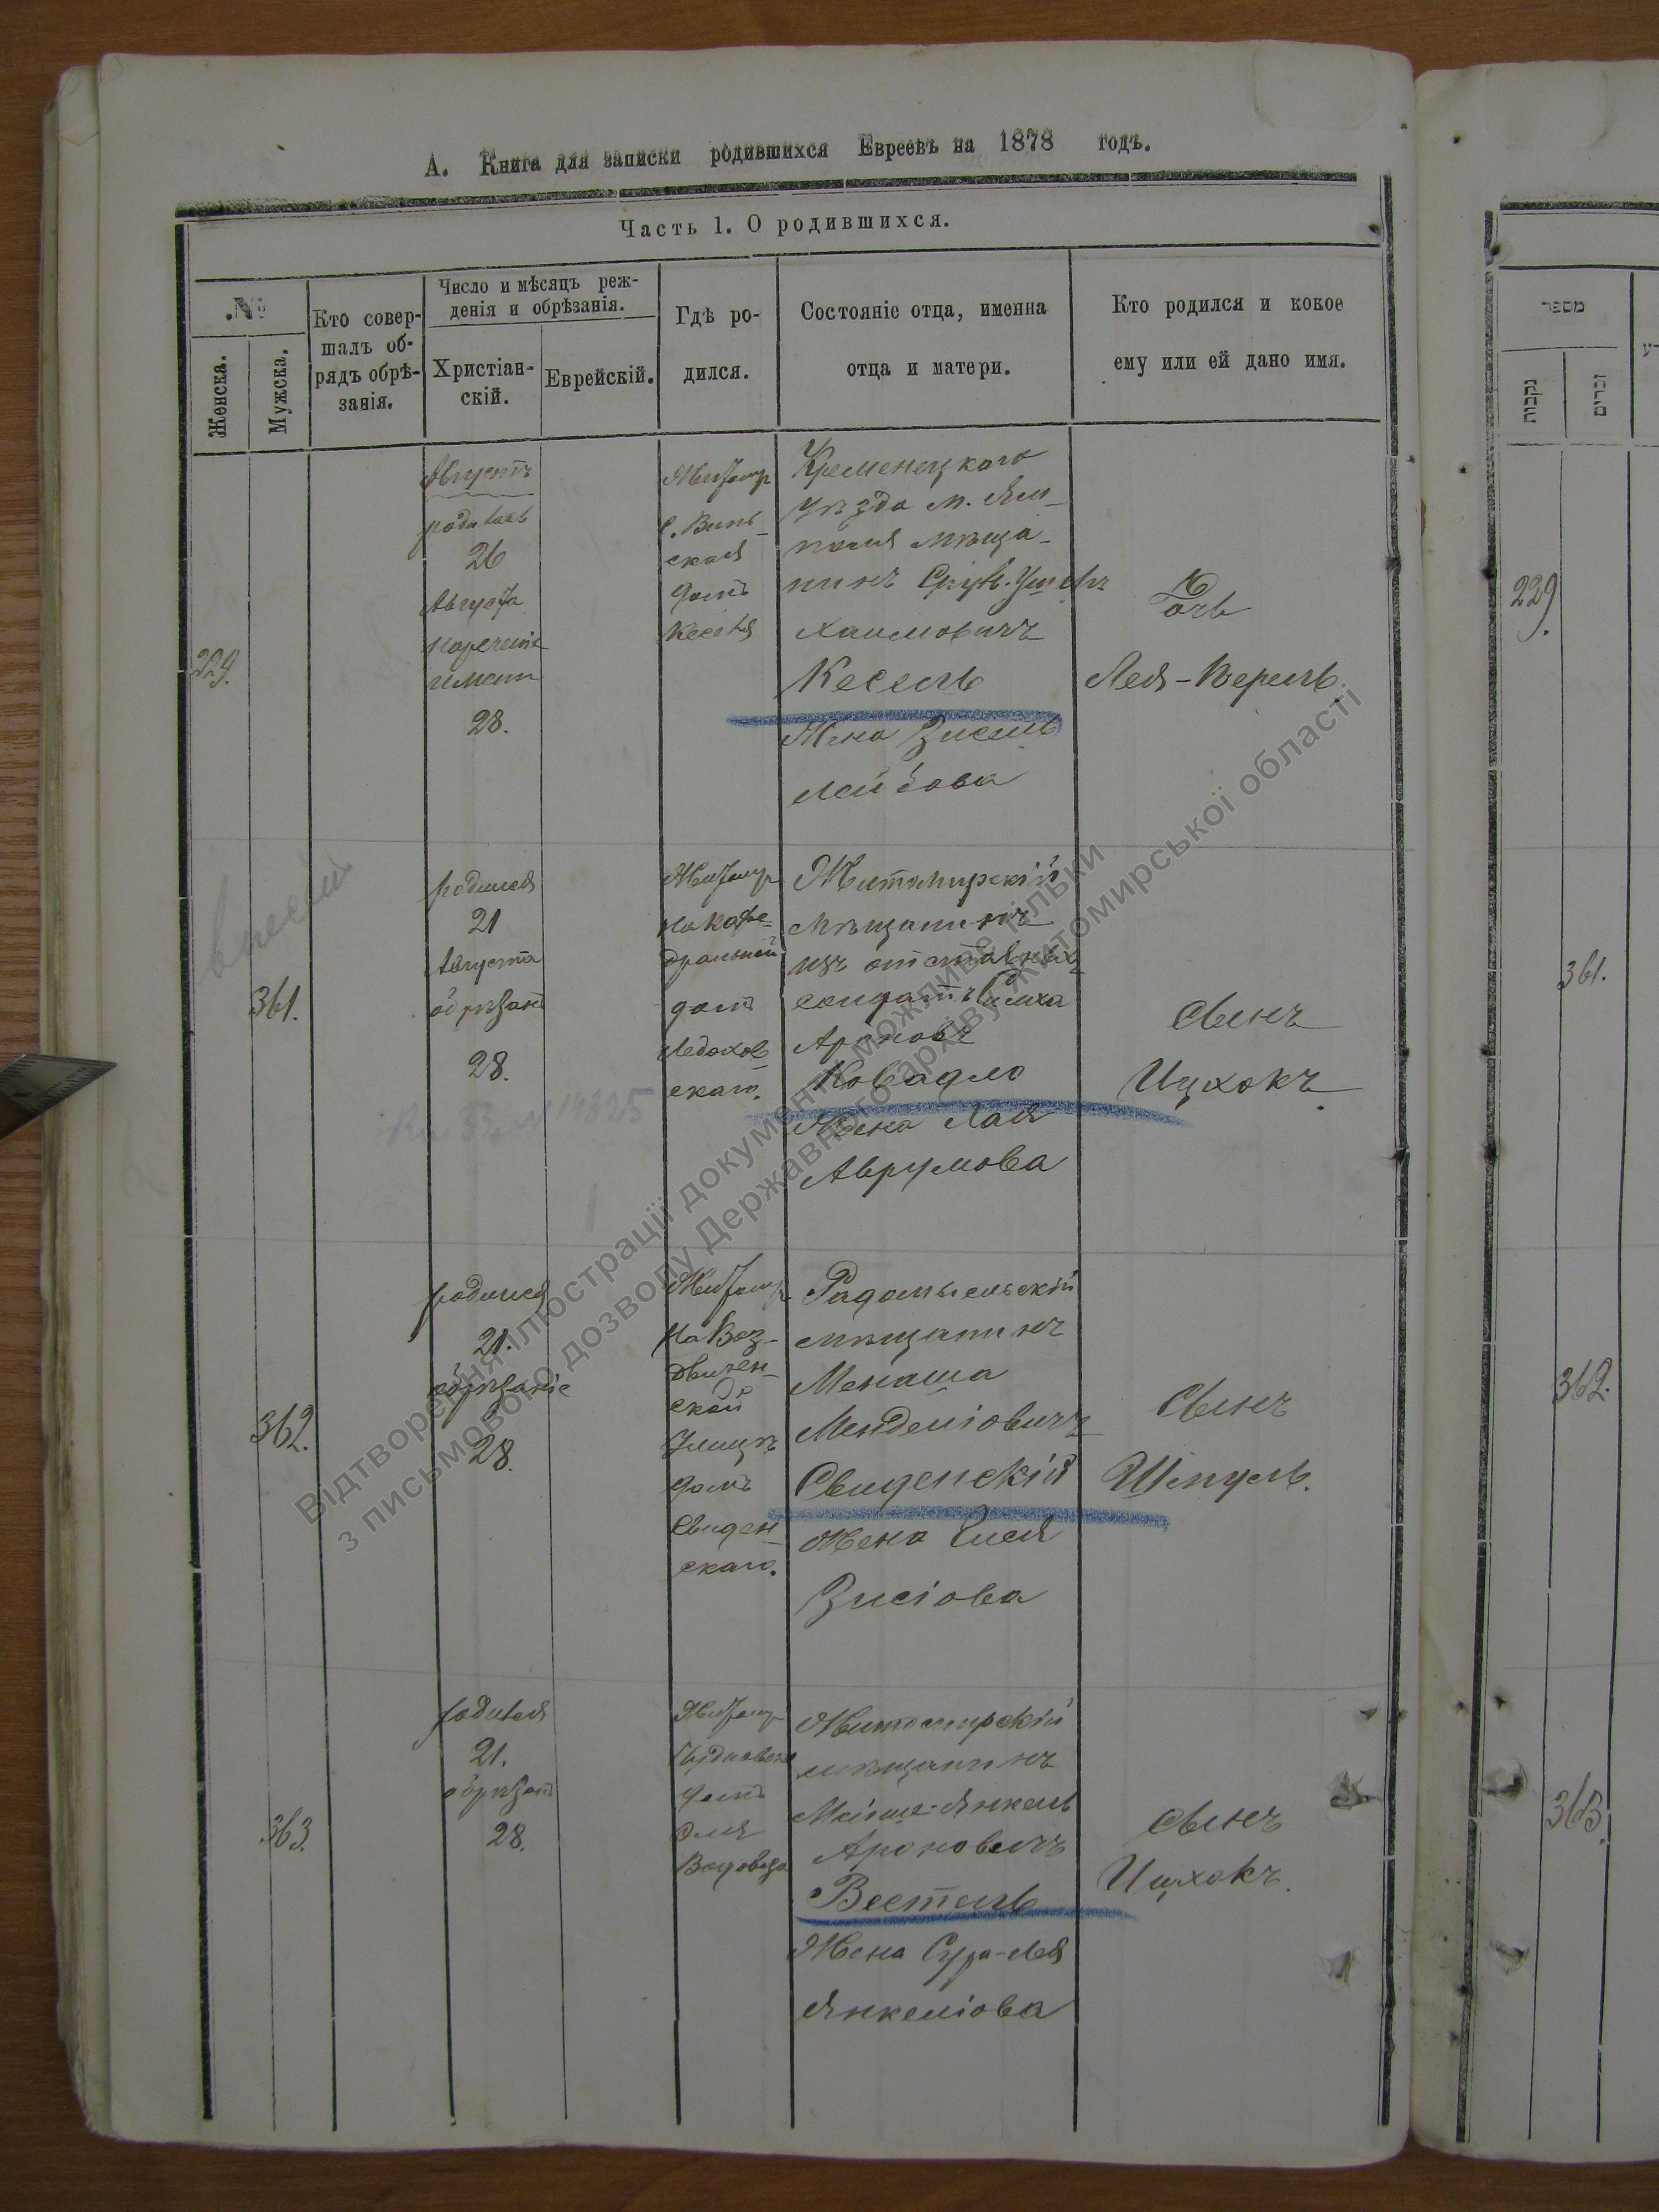 А. Книга для записки родившихся Евреевъ на 1878 годъ.
Часть 1. О родившихся.
№
Женска.
Мужска.
Кто совер-
шалъ об-
рядъ обрѣ-
занія.
Число и мѣсяцъ реж-
денія и обрѣзанія.
Христіан-
скій.
Еврейскій.
Гдѣ ро-
дился.
Состояніе отца, именна
отца и матери.
Кто родился и кокое
ему или ей дано имя.
229.
Августъ
родилась
26
Августа
28.
Житомир
домъ
Кременецкаго
уѣзда м. Ям-
поля мѣща-
нинъ
Хаимовичъ
Кесель
Жена Зисель
Лейбова
Дочь
Лея-Перель.
361.
родился
21
Августа
обрѣзанъ
28.
Житомир
на Кафе-
дральной
домъ
Ледохов
скаго.
Житомирскій
мѣщанинъ
изъ отставныхъ
солдатъ Симха
Ароновъ
Ковадло
Жена Хая
Аврумова
Сынъ
Ицхокъ.
362.
родился
21.
обрѣзаніе
28.
Житомир
на Воз-
движен-
ской
улицѣ
домъ
Свиден-
скаго.
Радомысльскій
мѣщанинъ
Менаша
Менделіовичъ
Свиденскій
Жена
Зисіова
Сынъ
Шмуль.
363.
родился
21.
обрѣзанъ
28.
Житомир
домъ
Житомирскій
мѣщанинъ
Мойше-Янкель
Ароновичъ
Вестель
Жена Сура-Лея
Янкеліова
Сынъ
Ицхокъ.
מספר
נקבות
זכרים
229.
361.
362.
363.
Відтворення ілюстрації документу можливе тільки
з письмового дозволу Державного архіву Житомирської області